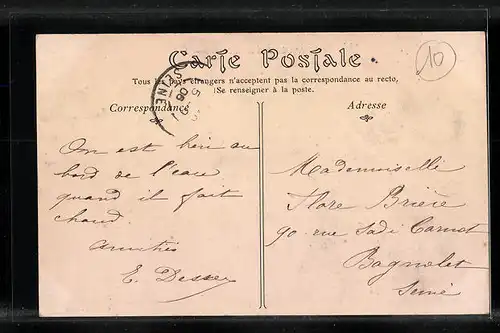 Carte Postale
10
Tous les pays étrangers n'acceptent pas la correspondance au recto,
(Se renseigner à la poste.
Correspondance
Adresse
SEINE
On est bien au
bord de l'eau
quand il fait
chaud.
Amitiés
E. Desse
Mademoiselle
Flore Brière
90 rue Sadi Carnot
Bagnolet
Seine